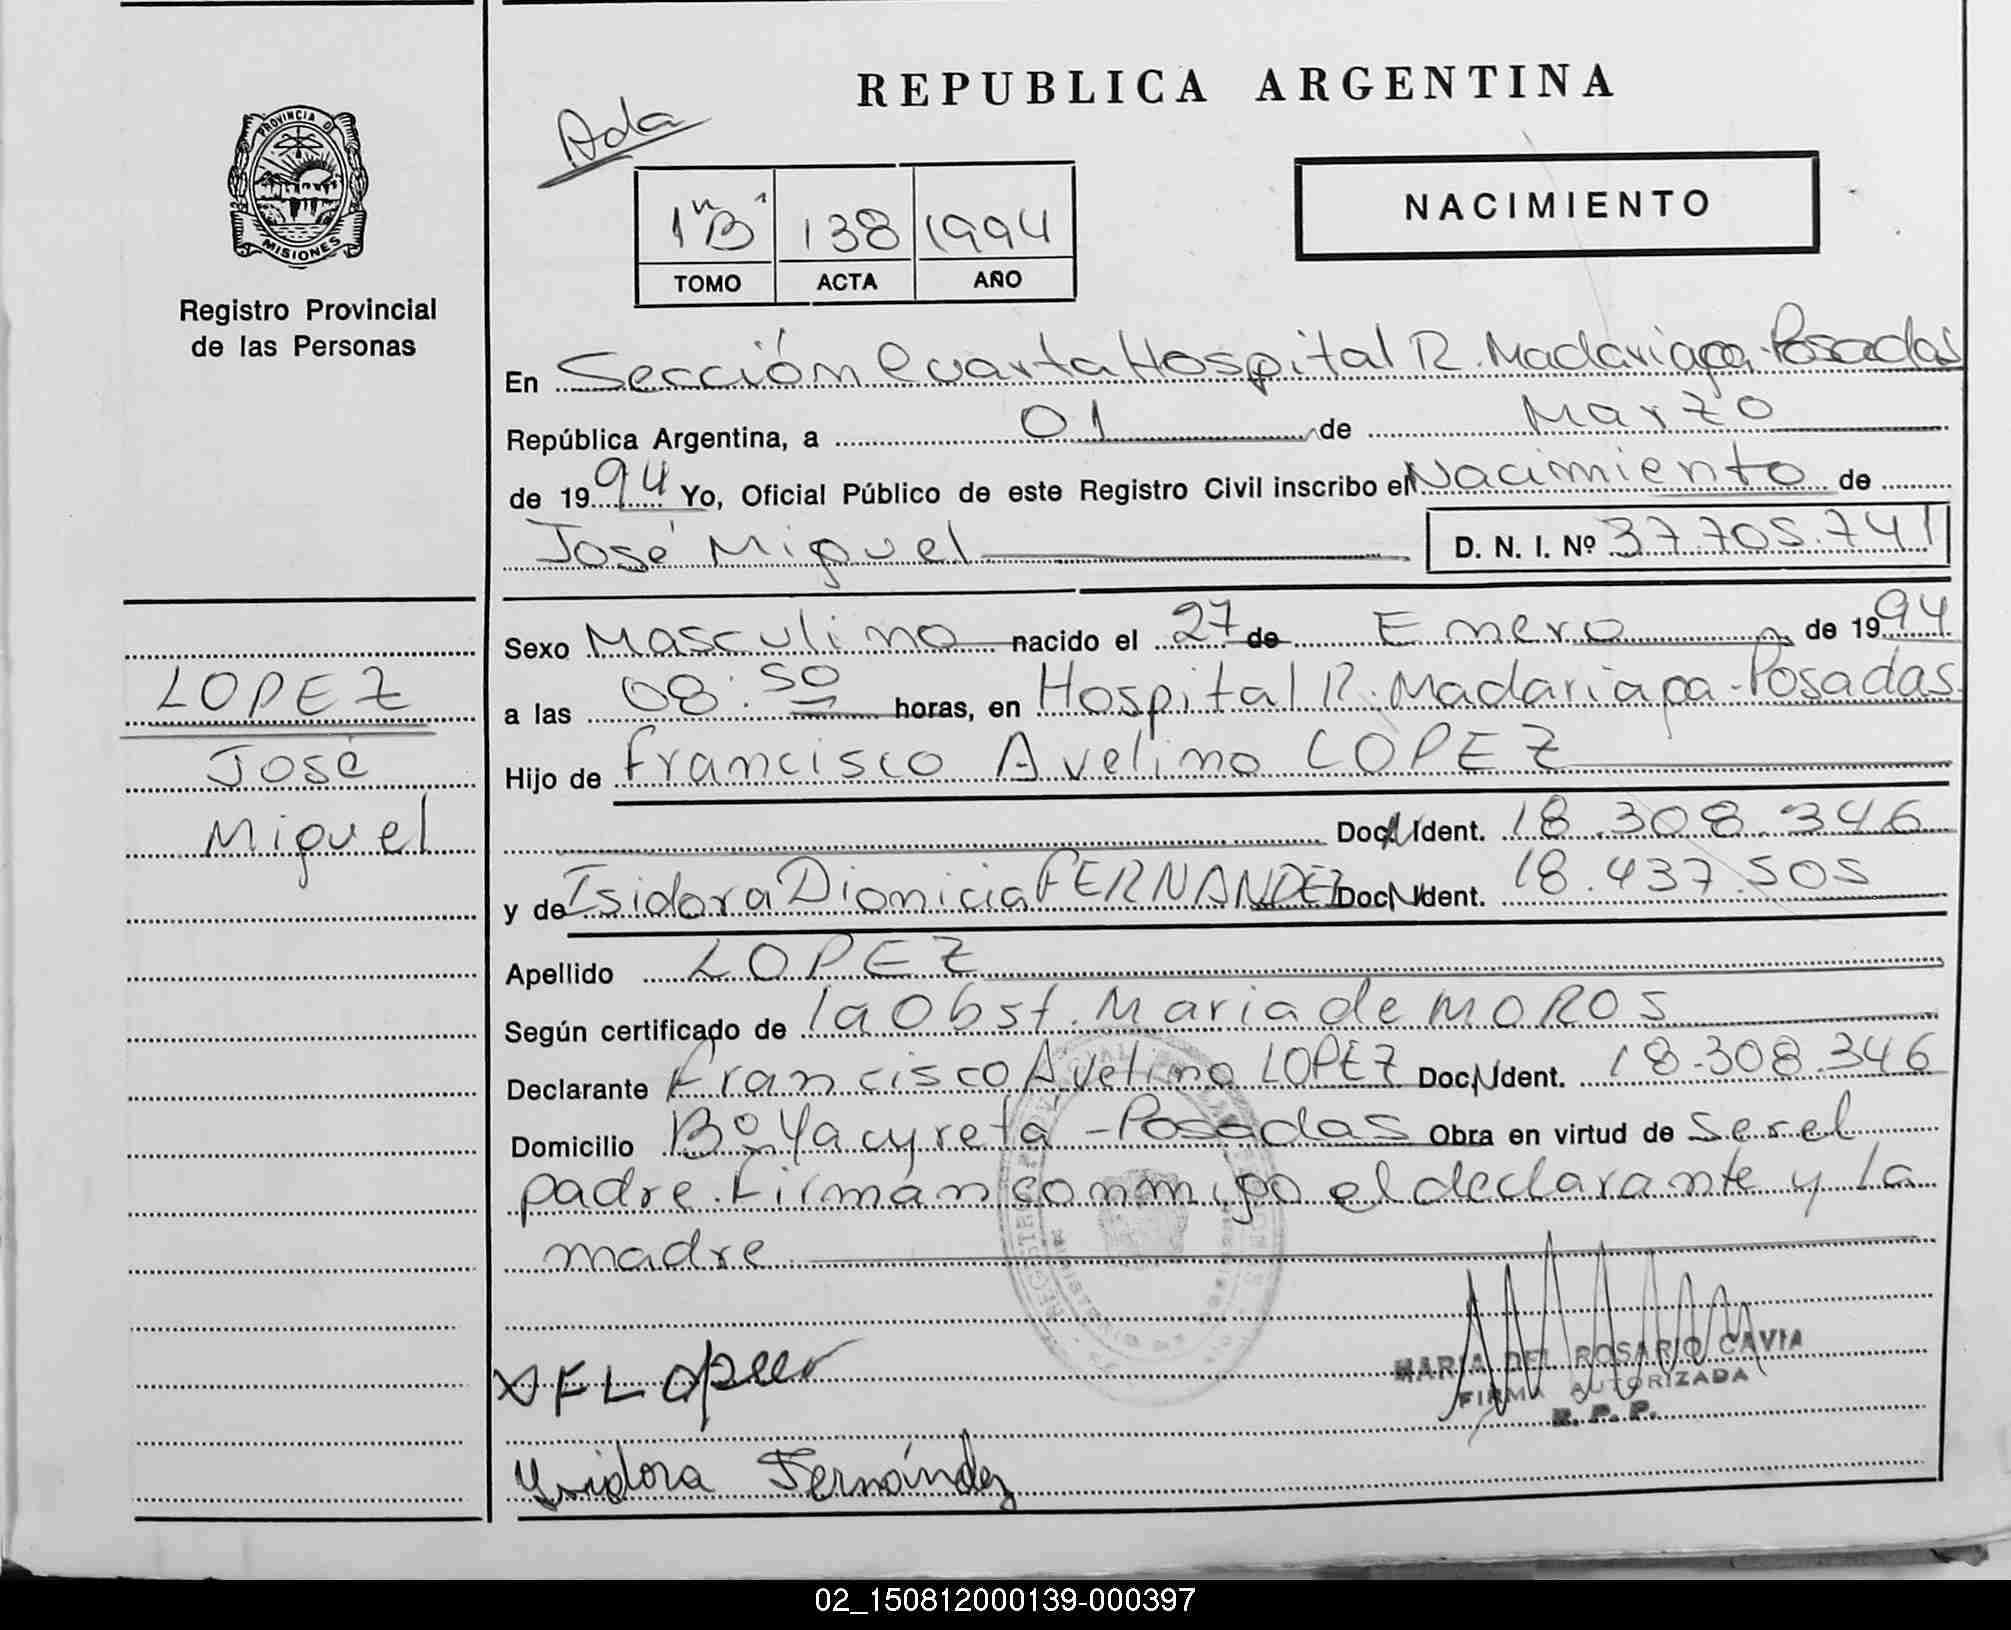 REPUBLICA ARGENTINA
Ada
PROVINCIA DE
MISIONES
Registro Provincial
de las Personas
1 "B" 138 1994
TOMO ACTA AÑO
NACIMIENTO
En Sección Cuarta Hospital R. Madariaga-Posadas
República Argentina, a 01 de Marzo
de 1994 Yo, Oficial Público de este Registro Civil inscribo el Nacimiento de
José Miguel D. N. I. Nº 37.705.741
LOPEZ
José
Miguel
Sexo Masculino nacido el 27 de Enero de 1994
a las 08:50 horas, en Hospital R. Madariaga-Posadas
Hijo de Francisco Avelino LOPEZ
Doc N Ident. 18.308.346
y de Isidora Dionicia FERNANDEZ Doc N Ident. 18.437.505
Apellido LOPEZ
Según certificado de la Obst. Maria de MOROS
Declarante Francisco Avelino LOPEZ Doc N Ident. 18.308.346
Domicilio Bº Yacyreta-Posadas Obra en virtud de ser el
padre. Firman conmigo el declarante y la
madre
MARIA DEL ROSARIO CAVIA
FIRMA AUTORIZADA
R. P. P.
X F Lopez
Ysidora Fernández
02_150812000139-000397